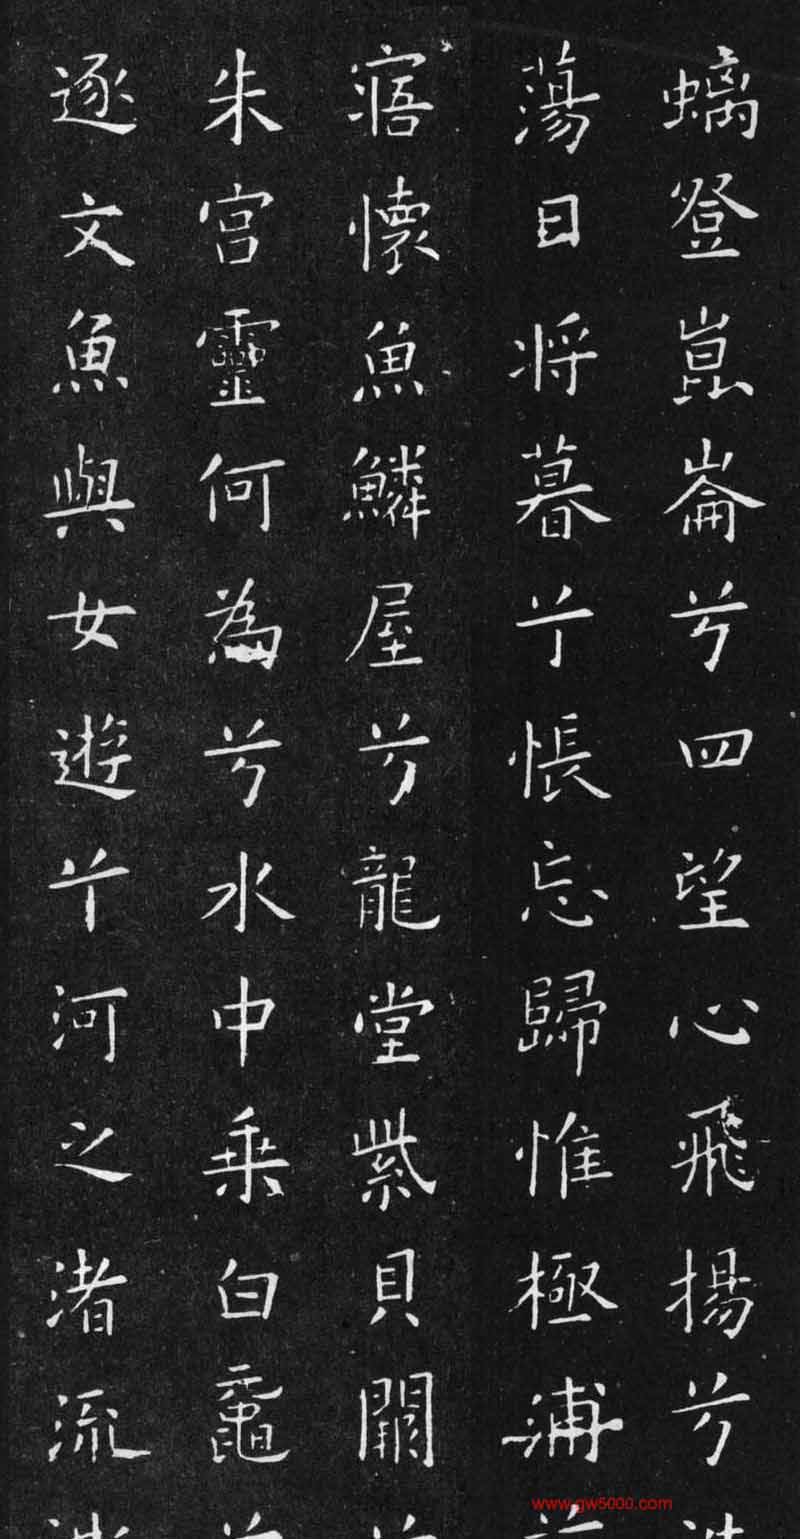 螭登崑崙兮四望心飛揚兮
蕩日將暮兮悵忘歸惟極浦
寤懷魚鱗屋兮龍堂紫貝闕
朱宮靈何為兮水中乗白黿
逐文魚與女遊兮河之渚流
www.gw5000.com